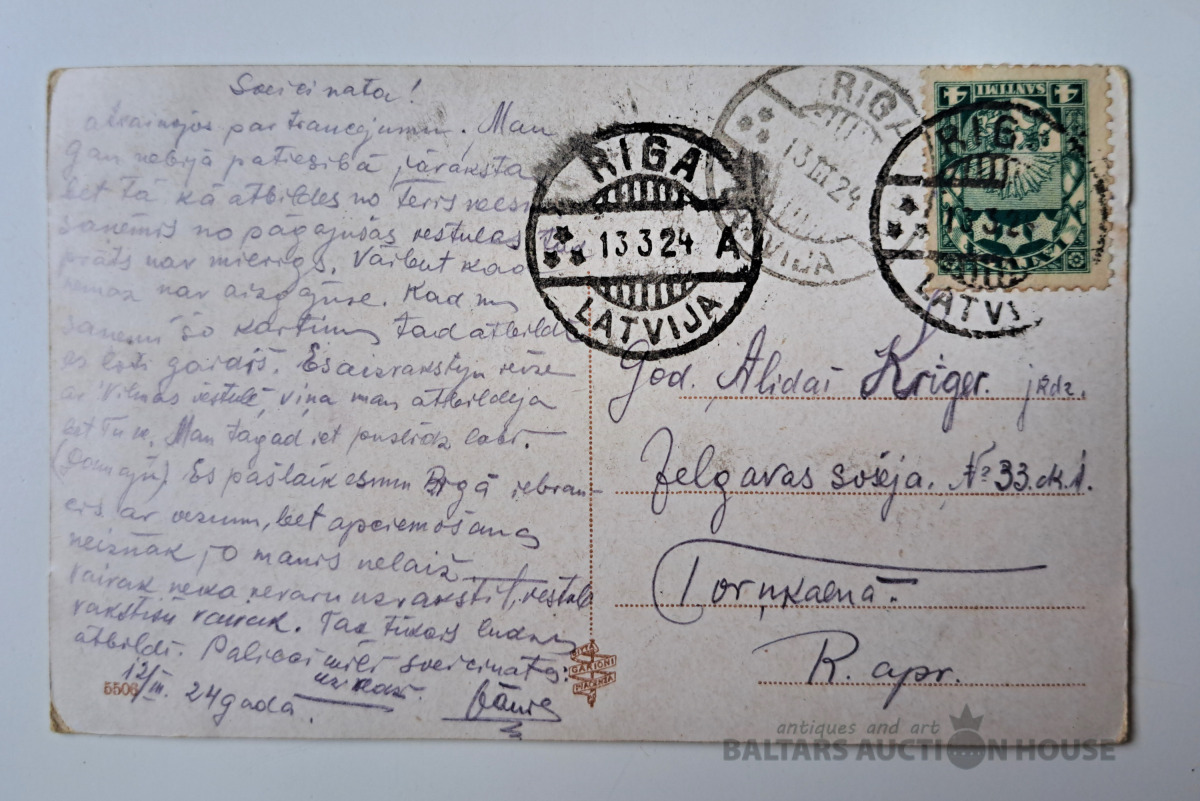 Sveicinata!
atvainojos par traucejumu. Man
gan nebijā patiesibā jāraksta
bet tā kā atbildes no Tevis
sanēmis no pāgājušās vestules
prāts nav mierigs. Vārbut kad
nemaz nav aizgājuse. Kad
šo kartiņu tad atbildi
es loti gaidiš. Es aizrakstiju
ar Vilmas vēstulē, viņa man atbildeja
bet Tu ne. Man tagad iet puslidz labi.
(Domāju) Es pašlaik esmu Rigā iebrau-
cis ar vezumu, bet apciemošana
neiznāk, jo manis nelaiž.
Vairāk neka nevaru uzrakstit, vēstulē
rakstišu vairāk. Tad tikais ludzu
atbildi. Paliec mīļi sveicinata
uz redz.
12/III. 24 gadā.
5506
RIGA
13 3 24 A
LATVIJA
RIGA
13 III 24
LATVIJA
RIGA
LATVI
4 SANTIMI 4
LATVIJA
God. Alidai Kriger. jkdz.
Jelgavas šoseja. № 33. dk. 1.
Torņkalnā.
R. apr.
GARIONI
PIACENZA
antiques and art
BALTARS AUCTION HOUSE